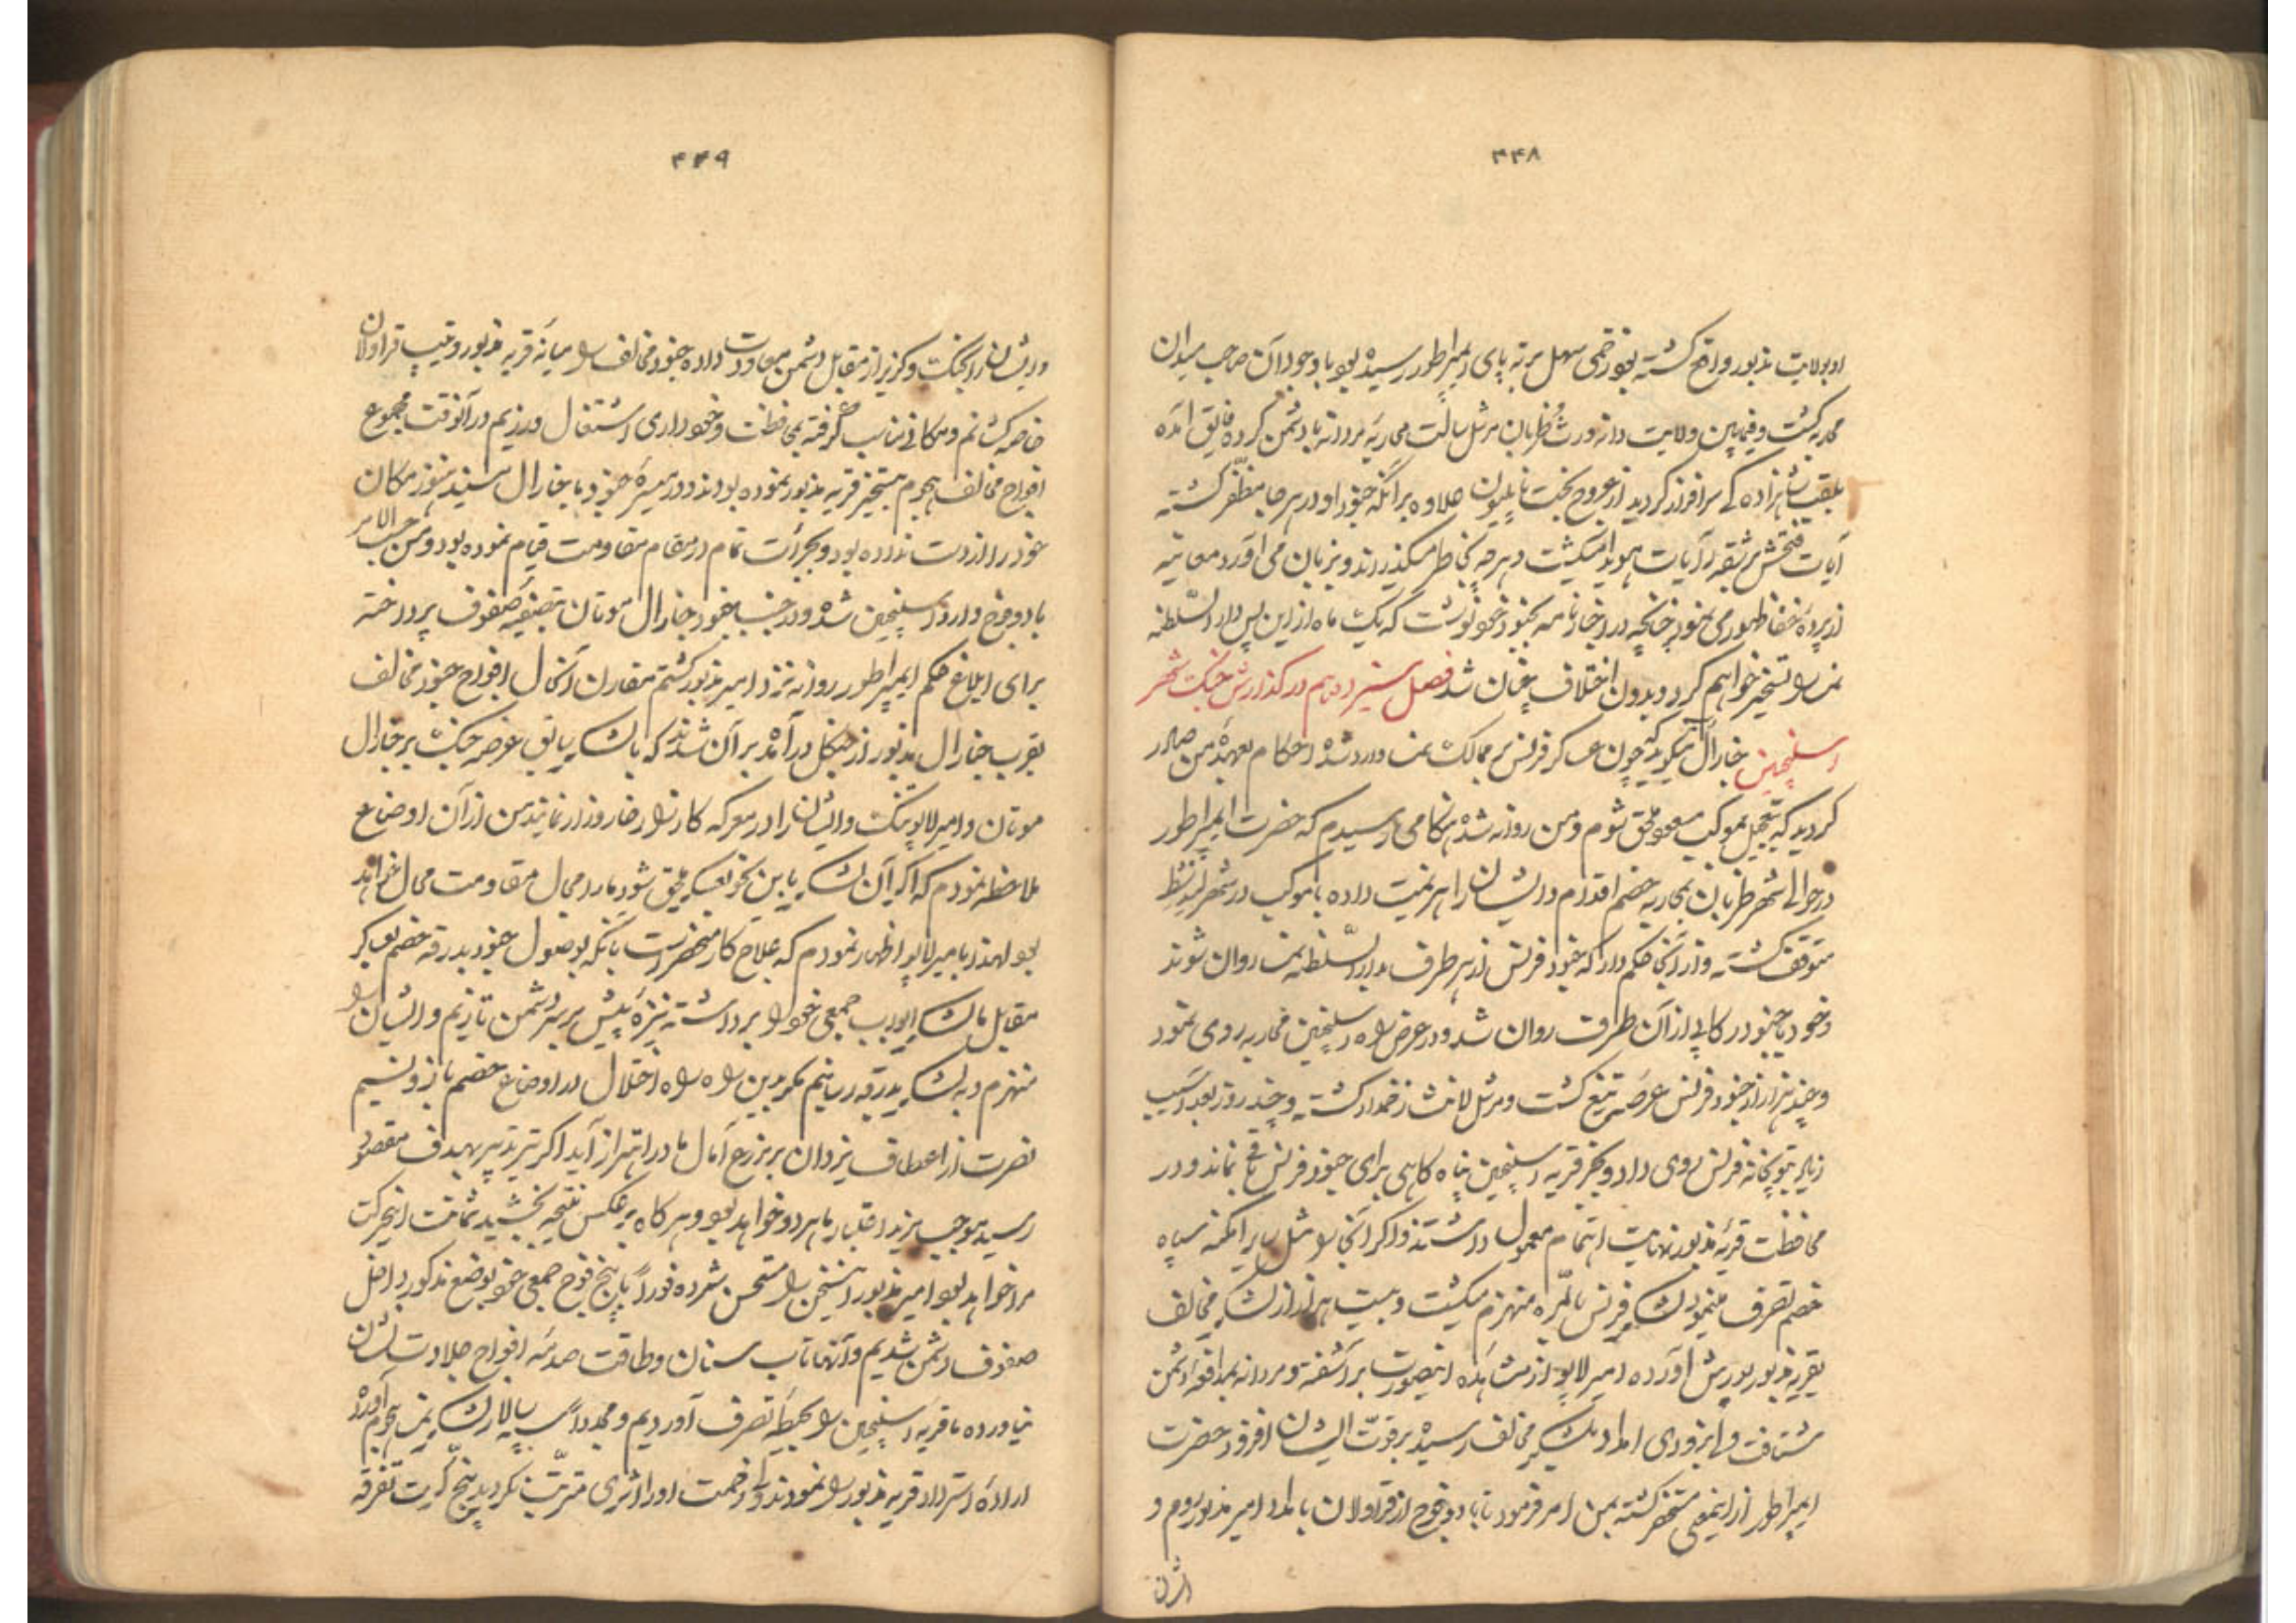 ۴۴۸
او بولایت مذبور واقع کشته بود زخمی سهل بر ته پای ایمپراطور رسیده بود با وجود آن صاحب میدان
محاربه کشت و فیمابین ولایت دانه ورث و ظربان مرشل سالت محاربه مردانه با دشمن کرده فایق آمده
بلقب شاهزاده کی سرافراز کردید از عروج بخت ناپلیون علاوه بر آنکه جنود او در هر جا مظفر کشته
آیات فتحش بر شقه رآیات هویدا میکشت و هر چه بخاطر میکذراند و بزبان می آورد معاینه
از پرده خفا ظهور می نمود چنانچه در اخبارنامه بجنود خود نوشت که یک ماه از این پس دارالسلطنه
نمسا را تسخیر خواهم کرد و بدون اختلاف چنان شد فصل سیزدهم در کذارش جنک شهر
اسلنجین جنارال میکوید که چون عساکر فرنس بر ممالک نمسا وارد شده احکام بعهده من صادر
کردید که بتعجیل بموکب مسعود ملحق شوم و من روانه شده هنکامی رسیدم که حضرت ایمپراطور
در حوالی شهر ظربان بمحاربه خصم اقدام و ایشان را هزیمت داده با موکب در شهر
متوقف کشته و از آنجا حکم داد که جنود فرنس از هر طرف بدارالسلطنه نمسا روان شوند
و خود با جنود رکابی از آن طرف روان شد و در عرض راه اسلنجین محاربه روی نمود
و چند هزار از جنود فرنس عرصه تیغ کشت و مرشل لانث زخمدار کشته و چند روز بعد آسیب
زیاد بتوپخانه فرنس روی داد و بجز قریه اسلنجین پناه کاهی برای جنود فرنس باقی نماند و در
محافظت قریه مذبور نهایت اهتمام معمول داشتند و اکر آنجا را مثل سایر امکنه سپاه
خصم تصرف مینمود لشکر فرنس بالمره منهزم میکشت و بیست هزار از لشکر مخالف
بقریه مذبور یورش آورده امیر لابو از مشاهده اینصورت بر آشفته و مردانه بمدافعه دشمن
شتافت و بزودی امداد بلشکر مخالف رسیده بر قوت ایشان افزود حضرت
ایمپراطور از اینمعنی مستحضر کشته بمن امر فرمود تا با دو فوج از قراولان بامداد امیر مذبور روم و
ایشان
۴۴۹
و ایشان را بجنک و کریز از مقابل دشمن معاودت داده جنود مخالف را میانه قریه مذبور و تیپ قراولان
خاصه کشانم و مکانی مناسب کرفته بمحافظت و خودداری اشتغال ورزیم در آنوقت مجموع
افواج مخالف هجوم بتسخیر قریه مذبور نموده بودند و در میسره جنود ما جنارال مسنید هنوز مکان
خود را از دست نداده بود و بجرأت تمام در مقام مقاومت قیام نموده بود و من حسب الامر
با دو فوج وارد اسلنجین شده و در جنب جنود جنارال موتان بتصفیه صفوف پرداخته
برای ابلاغ حکم ایمپراطور روانه نزد امیر مذبور کشتم مقارن آنحال افواج جنود مخالف
بقرب جنارال مذبور از جنکل درآمده بر آن شدند که با لشکر سابق عرصه جنک بر جنارال
موتان و امیر لابو تنک و ایشان را در معرکه کارزار خار و زار نمایند من از آن اوضاع
ملاحظه نمودم که اکر آن لشکر باین نحو بعسکر ملحق شود ما را مجال مقاومت محال خواهد
بود لهذا بامیر لابو اظهار نمودم که علاج کار منحصر است بآنکه بوصول جنود بدرقه خصم بعساکر
مقابل ما لشکر ایورب جمعی خود را برداشته نیزه پیش بر سر دشمن تازیم و ایشان را
منهزم و به لشکر بدرقه رسانیم مکر بدین راه راه اختلال در اوضاع خصم باز و نسیم
نصرت از اعطاف یزدان بر مزرع آمال ما در اهتزاز آید اکر تیر تدبیر بهدف مقصود
رسید موجب مزید اعتبار ما هر دو خواهد بود و هر کاه بر عکس نتیجه بخشید شماتت اینحرکت
مرا خواهد بود امیر مذبور اینسخن را مستحسن شمرده فوراً با پنج فوج جمعی خود بوضع مذکور داخل
صفوف دشمن شدیم و آنها تاب سنان و طاقت صدمه افواج جلادت نشان
نیاورده ما قریه اسلنجین را بحیطه تصرف آوردیم و مجدداً سپه سالار لشکر نمسا هجوم آورده
اراده استرداد قریه مذبور را نمودند ولی زحمت او را اثری مترتب نکردید پنج کرت تفرقه